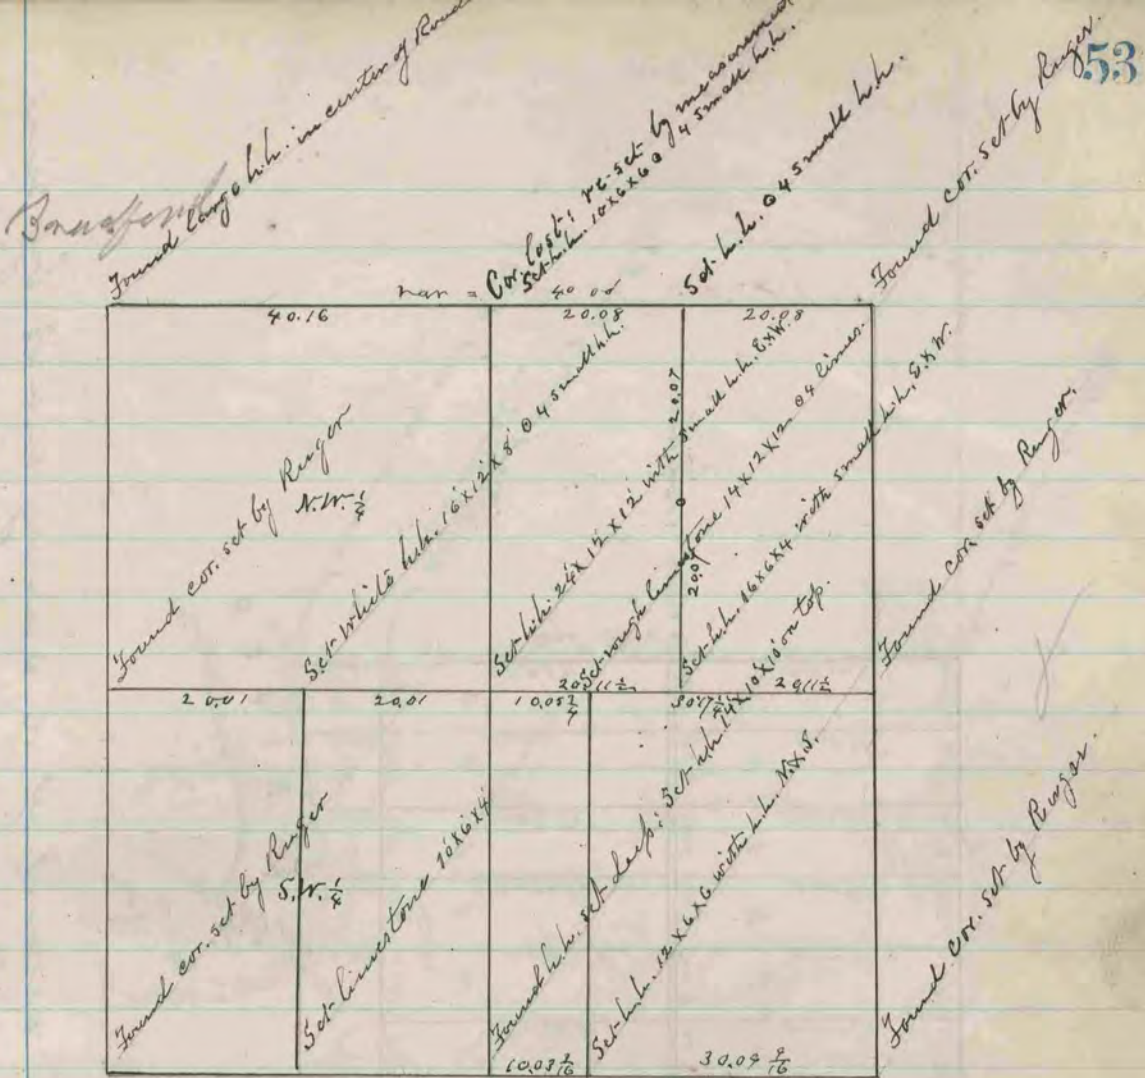 53
Found large h.h. in center of Road
Cor. lost; re-set by measurement
Set h.h. 10x6x6 @ 4 small h.h.
Set h.h. @ 4 small h.h.
Found cor. set by Ruger.
40.16
20.08
20.08
Found cor. set by Ruger
N.W. 1/4
Set white h.h. 16x12x8 @ 4 small h.h.
Set h.h. 24x12x12 with small h.h. E.&W.
20.07
20.07
Set rough limestone 14x12x12 @ 4 limes.
Set h.h. 16x6x4 with small h.h. E.&W.
Found cor. set by Ruger.
20.01
20.01
10.05 3/4
20.11 1/2
Found cor. set by Ruger
S.W. 1/4
Set limestone 10x6x4
Found h.h. set deep; Set h.h. 14x10x10 on top.
Set h.h. 12x6x6 with h.h. N.&S.
Found cor. set by Ruger.
10.03 3/16
30.09 9/16